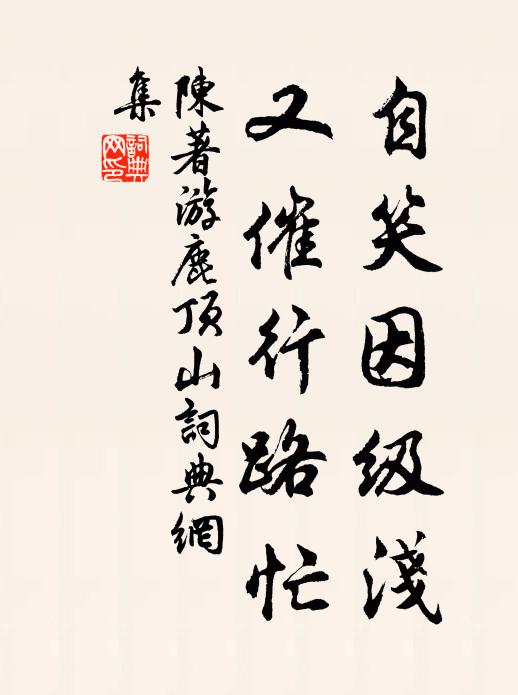 自笑因级淺
又催行路忙
陳著游鹿頂山詞典網
集
詞典
网印